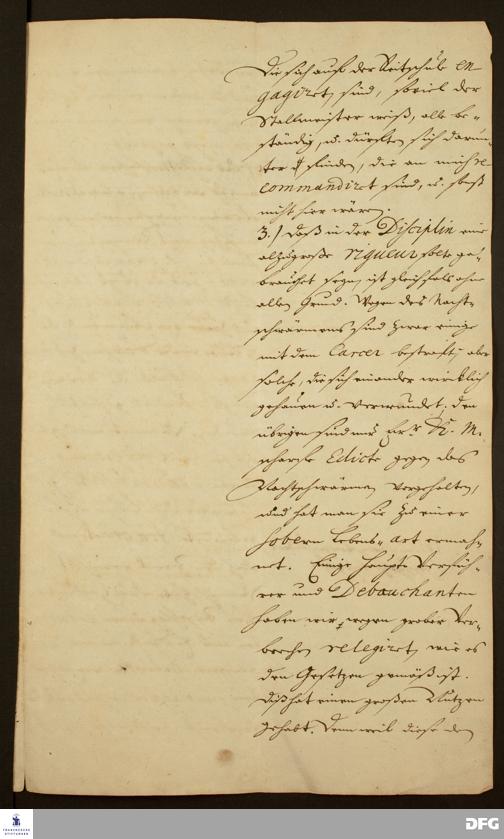 Die sich auf der Reitschule en-
gagiret, sind, soviel der
Stallmeister weiß, alle be-
ständig, u. dürften sich darun-
ter finden, die an mich re-
commandiret sind, u. sonst
nicht hier wären.
3.) Daß in der Disciplin eine
alzugroße rigueur solte ge-
brauchet seyn, ist gleichfalls ohne
allen Grund. Wegen des Nacht-
schwärmens sind zwar einige
mit dem Carcer bestraft, aber
solche, die sich einander wirklich
gehauen u. verwundet; den
übrigen sind nur K. M.
scharfe Edicte gegen das
Nachtschwärmen vorgehalten,
und hat man sie zu einer
sobern Lebens-art ermah-
net. Einige Haupt-Verfüh-
rer und Debauchanten
haben wir, wegen grober Ver-
brechen relegiret, wie es
den Gesetzen gemäß ist.
Diß hat einen großen Nutzen
gehabt. Denn weil diese den
FRANCKESCHE STIFTUNGEN
DFG